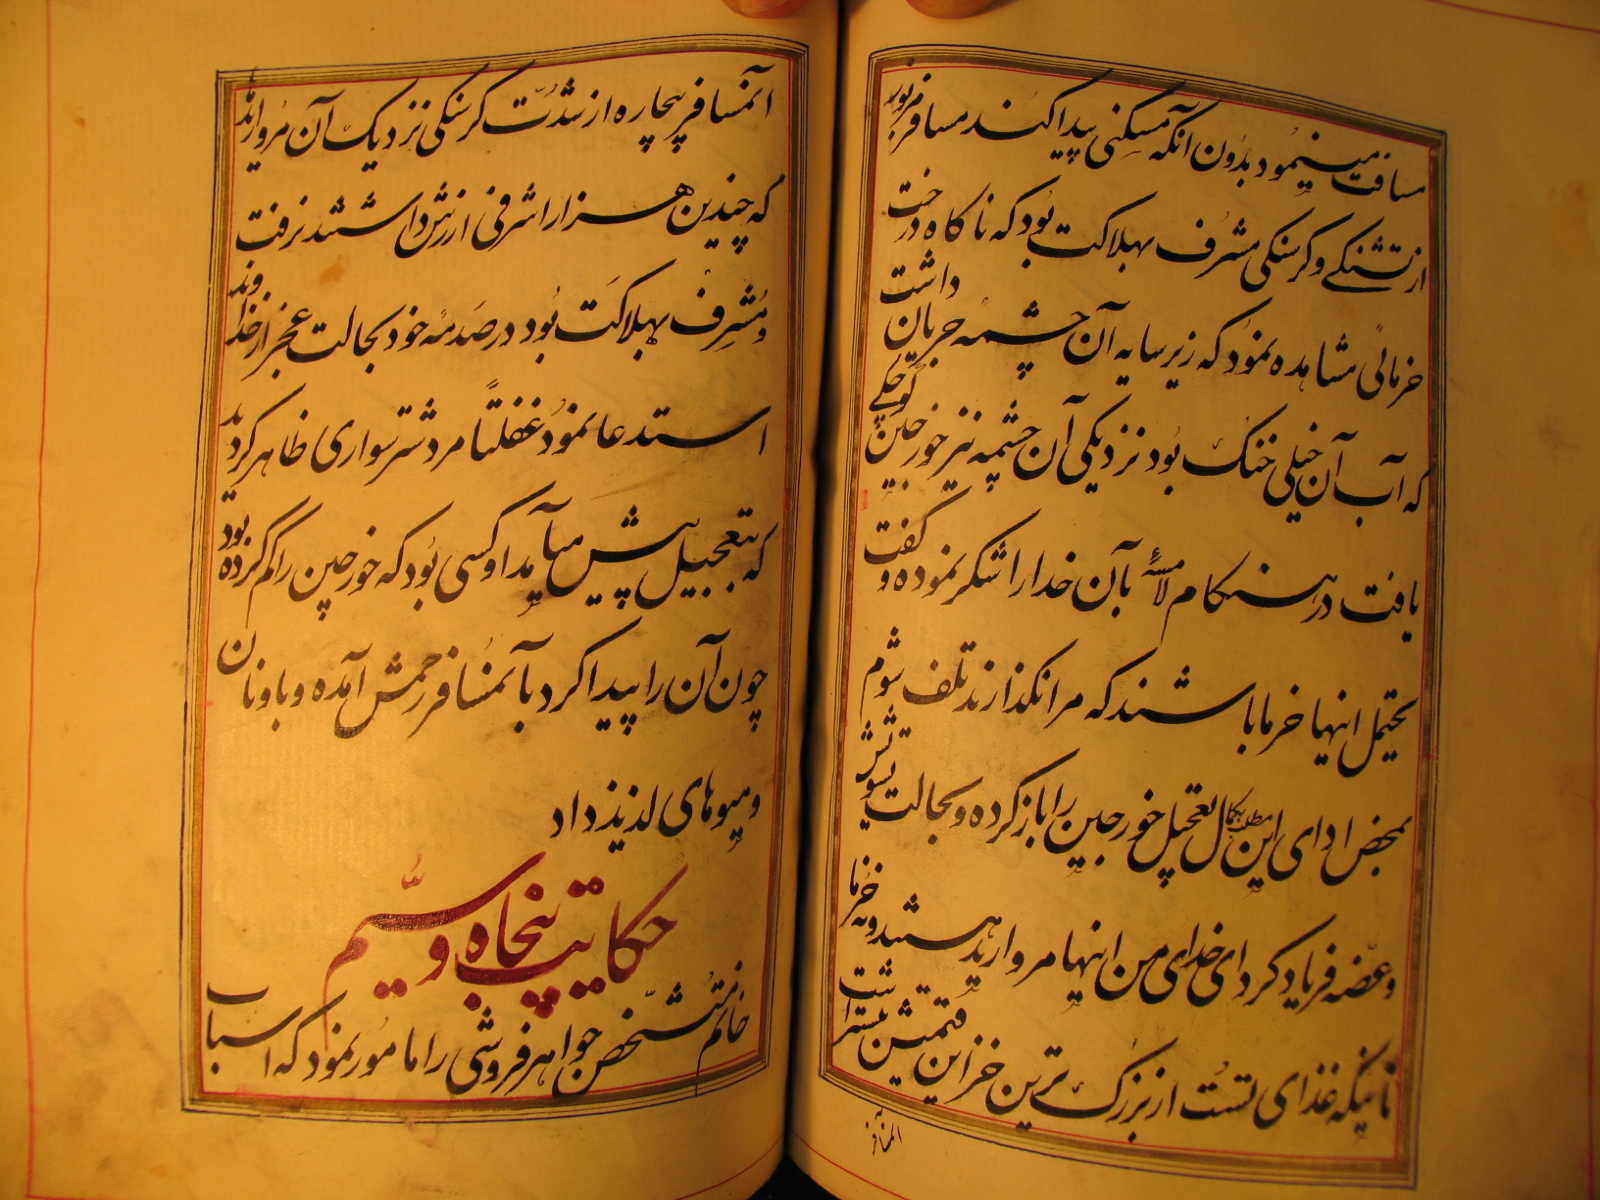 مسافت مینمود بدون آنکه مسکنی پیدا کند مسافر مزبور
از تشنکے و کرسنکی مشرف بهلاکت بود که ناکاه درخت
خرمائی مشاهده نمود که زیر سایه آن چشمهٔ جریان داشت
که آب آن خیلی خنک بود نزدیکی آن چشمه نیز خورجین کوچکے
یافت در هنکام لامسهٔ بآن خدا را شکر نموده و کفت
یحتمل اینها خرما باشند که مرا نکذارند تلف شوم
بمحض ادای این مطلب بکمال تعجیل خورجین را باز کرده و بحالت تشویش
و غصّه فریاد کرد ای خدای من اینها مروارید هستند و نه خرما
تا نیکه غذای تست از بزرک ترین خزاین قیمتش بیشتر است
المسافر
آنمسافر بیچاره از شدّت کرسنکی نزدیک آن مروارید
که چندین هزار اشرفی ارزش داشتند نرفت
و مشرف بهلاکت بود در صدمهٔ خود بحالت عجز از خداوند
استدعا نمود غفلتاً مرد شترسواری ظاهر کردید
که بتعجیل پیش میآمد او کسی بود که خورجین را کم کرده بود
چون آن را پیدا کرد بآنمسافر رحمش آمده و باو نان
و میوهای لذیذ داد
حکایت پنجاه و سیّم
خانم متشخّص جواهر فروشی را مامور نمود که اسباب